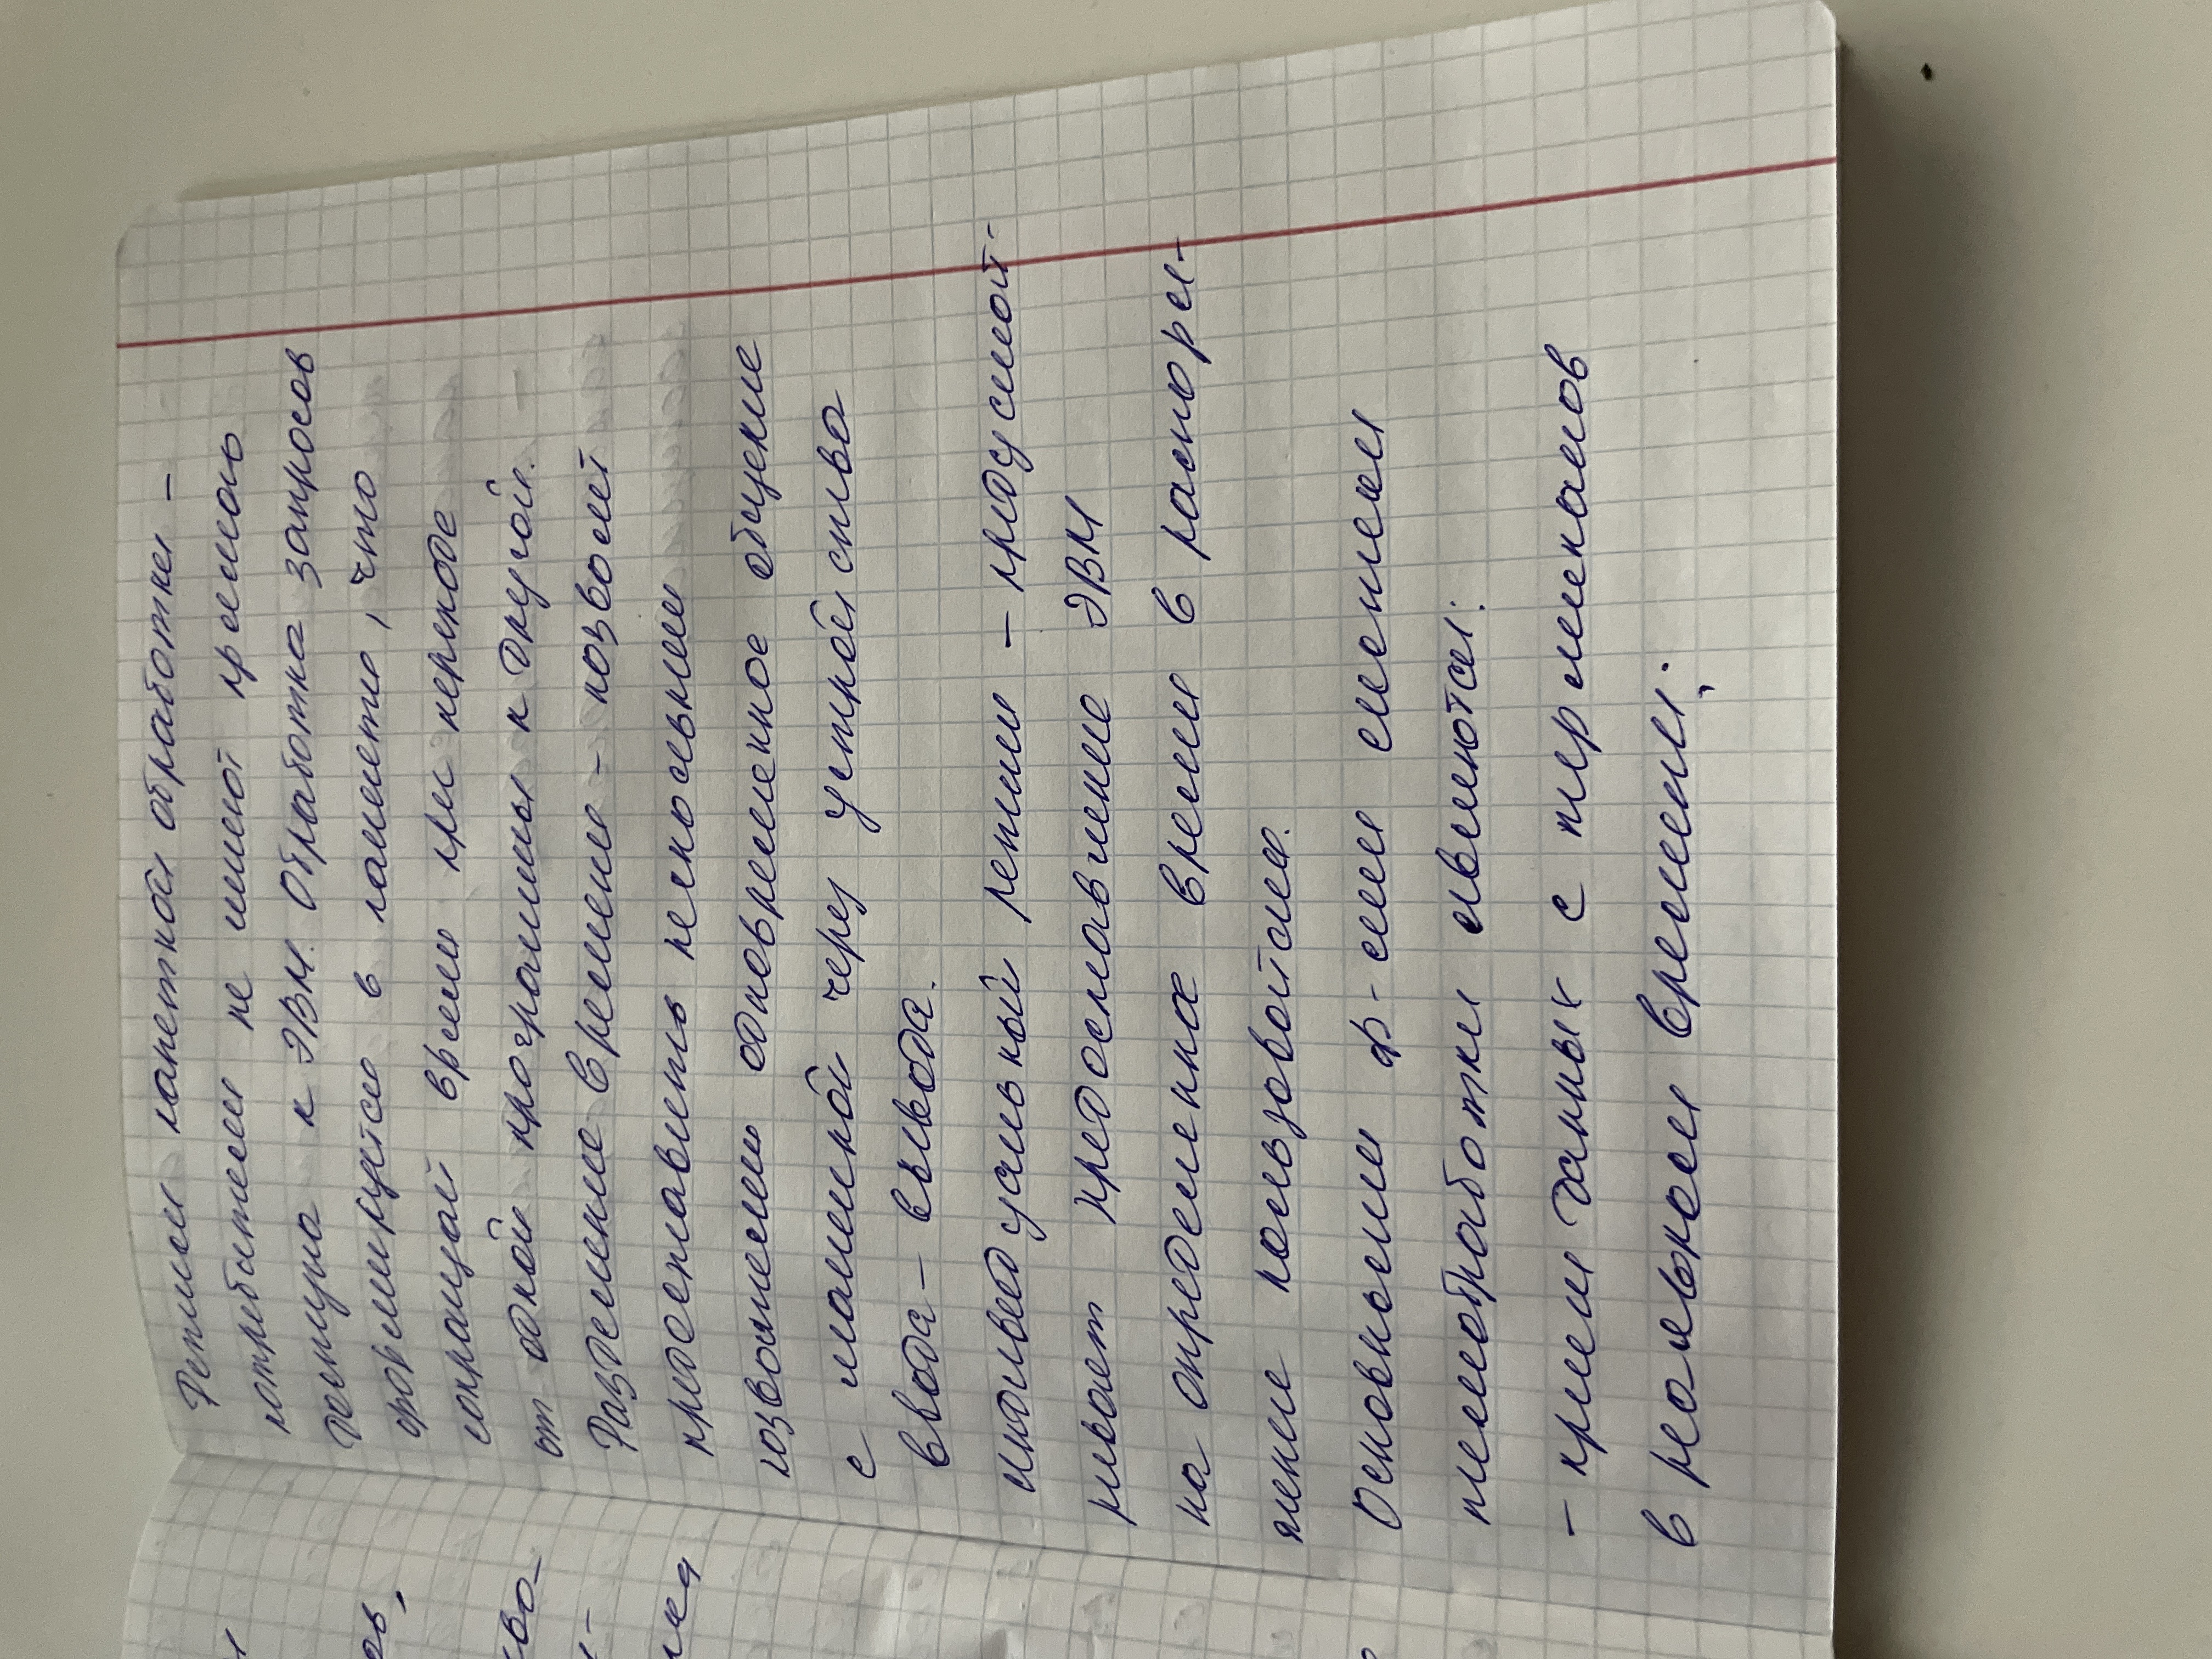 Режим пакетной обработки –
потребители не имеют прямого
доступа к ЭВМ. Обработка запросов
формируются в пакеты, что
сокращай время при переходе
от одной программы к другой.
Разделение времени – позволяет
предоставить нескольким
позволяем одновременное общение
с машиной через устройства
ввода – вывода.
индивидуальный режим – предусмат-
ривает предоставление ЭВМ
на определенное время в распоря-
жение пользователя.
Основными ф-ями системы
телеобработки являются:
– прием данных с терминалов
в реальном времени;